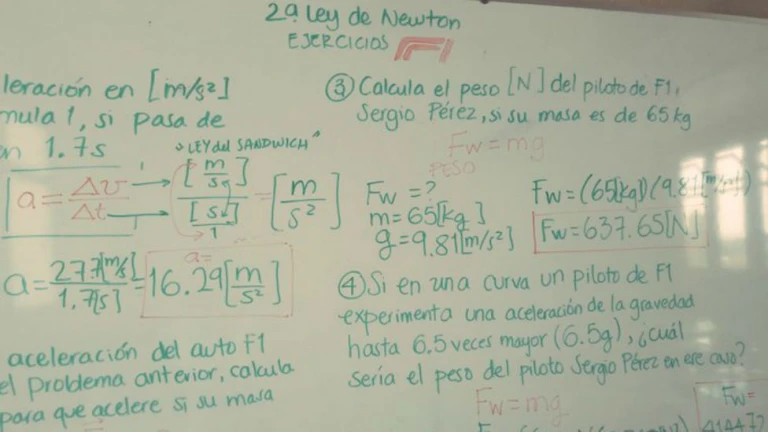 2ª Ley de Newton
EJERCICIOS F1
leración en [m/s²]
mula 1, si pasa de
en 1.7s
"LEY del SANDWICH"
a = Δv/Δt → [m/s]/[s]/1 = [m/s²]
a = 27.7[m/s]/1.7[s] = 16.29[m/s²]
a=
aceleración del auto F1
el problema anterior, calcula
para que acelere si su masa
③ Calcula el peso [N] del piloto de F1,
Sergio Pérez, si su masa es de 65kg
Fw = mg
PESO
Fw = ?
m = 65[kg]
g = 9.81[m/s²]
Fw = (65[kg])(9.81[m/s²])
Fw = 637.65[N]
④ Si en una curva un piloto de F1
experimenta una aceleración de la gravedad
hasta 6.5 veces mayor (6.5g), ¿cuál
sería el peso del piloto Sergio Pérez en ese caso?
Fw = mg
Fw =